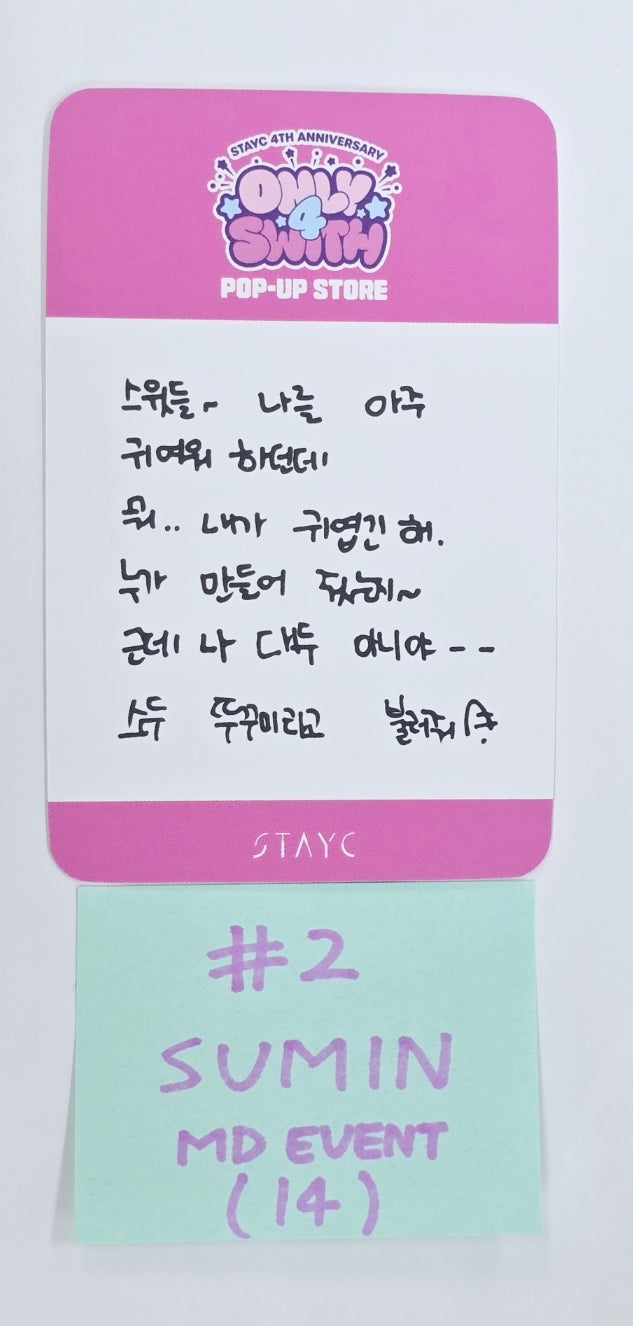 STAYC 4TH ANNIVERSARY
ONLY
4
SWITH
POP-UP STORE
스윗들~ 나를 아주
귀여워 하던데
뭐.. 내가 귀엽긴 해.
누가 만들어 줬는지~
근데 나 대두 아니야 - -
소두 뚜꾸미라고 불러줘
STAYC
#2
SUMIN
MD EVENT
(14)